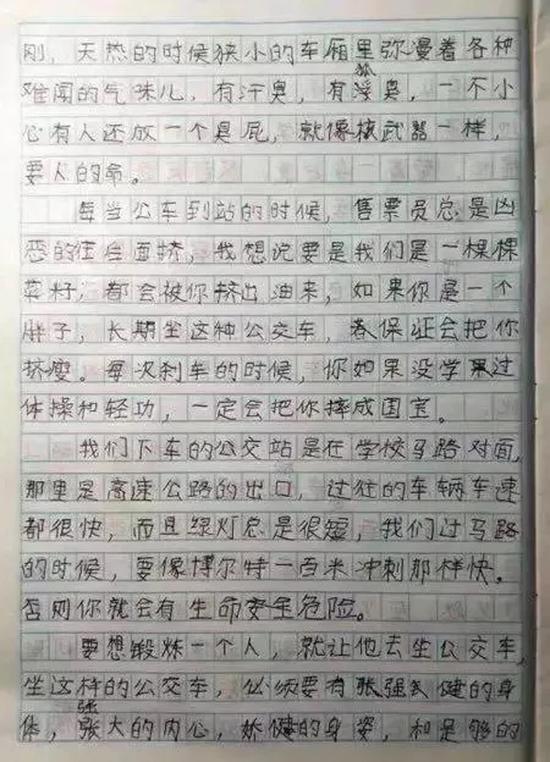 刚，天热的时候狭小的车厢里弥漫着各种
难闻的气味儿，有汗臭，有狐臭，一不小
心有人还放一个臭屁，就像核武器一样，
要人的命。
每当公车到站的时候，售票员总是凶
恶的往里面挤，我想说要是我们是一棵棵
菜籽，都会被你挤出油来，如果你是一个
胖子，长期坐这种公交车，春保证会把你
挤瘦。每次刹车的时候，你如果没学过
体操和轻功，一定会把你摔成国宝。
我们下车的公交站是在学校马路对面，
那里是高速公路的出口，过往的车辆车速
都很快，而且绿灯总是很短，我们过马路
的时候，要像博尔特一百米冲刺那样快。
否则你就会有生命安全危险。
要想锻炼一个人，就让他去坐公交车，
坐这样的公交车，必须要有强健的身
体，强大的内心，娇健的身姿，和足够的